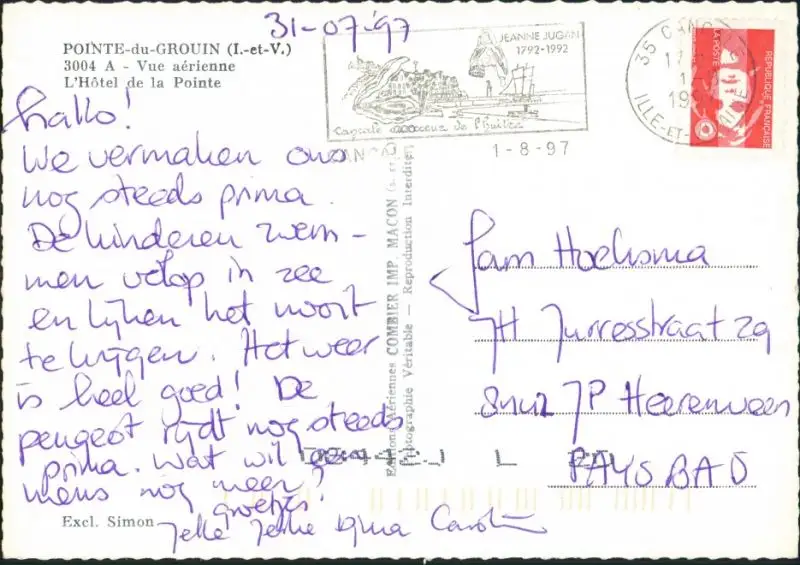 31-07-'97
POINTE-du-GROUIN (I.-et-V.)
3004 A - Vue aérienne
L'Hôtel de la Pointe
JEANNE JUGAN
1792-1992
Cancale
de l'huître
35 CANC
ILLE-ET-
LA POSTE
REPUBLIQUE FRANÇAISE
1-8-97
hallo!
We vermaken ons
nog steeds prima.
De kinderen zwem-
men volop in zee
en lijken het nooit
te krijgen. Het weer
is heel goed! De
peugeot rijdt nog steeds
prima. Wat wil een
mens nog meer?
groetjes
Jelle
Excl. Simon
Aériennes COMBIER IMP. MACON
Photographie Véritable — Reproduction Interdite
Fam Hoeksma
JH Jurresstraat 29
JP Heerenveen
PAYS BAS